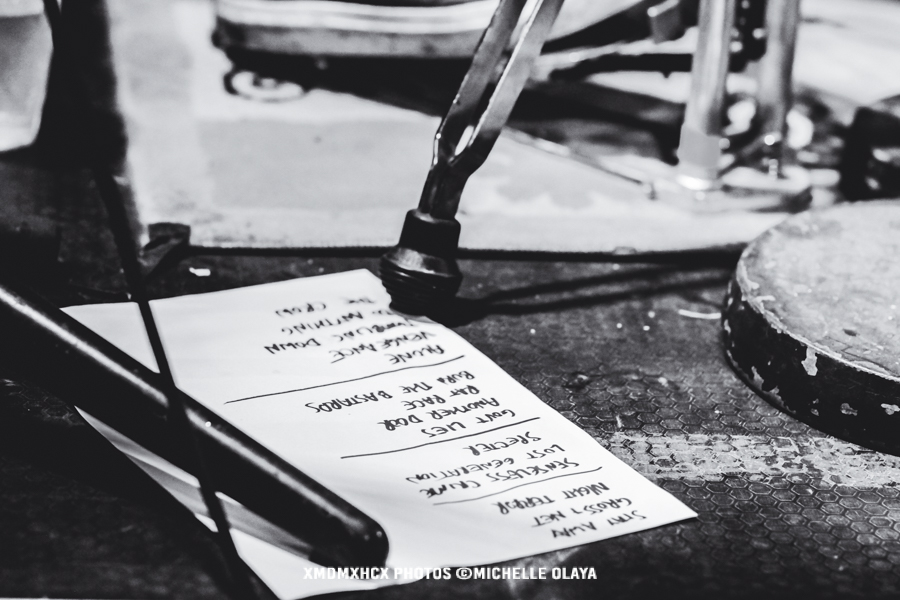 STAY AWAY
GROSS + NET
NIGHT TERROR
SENSELESS CRIME
LOST GENERATION
SPECTER
GOVT LIES
ANOTHER DOOR
RAT RACE
BURN THE BASTARDS
ALONE
VENGEANCE
DOWN
ANYTHING
THE
XMDMXHCX PHOTOS ©MICHELLE OLAYA